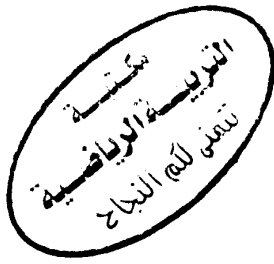 مكتبة
التربية الرياضية
تتمنى لكم النجاح